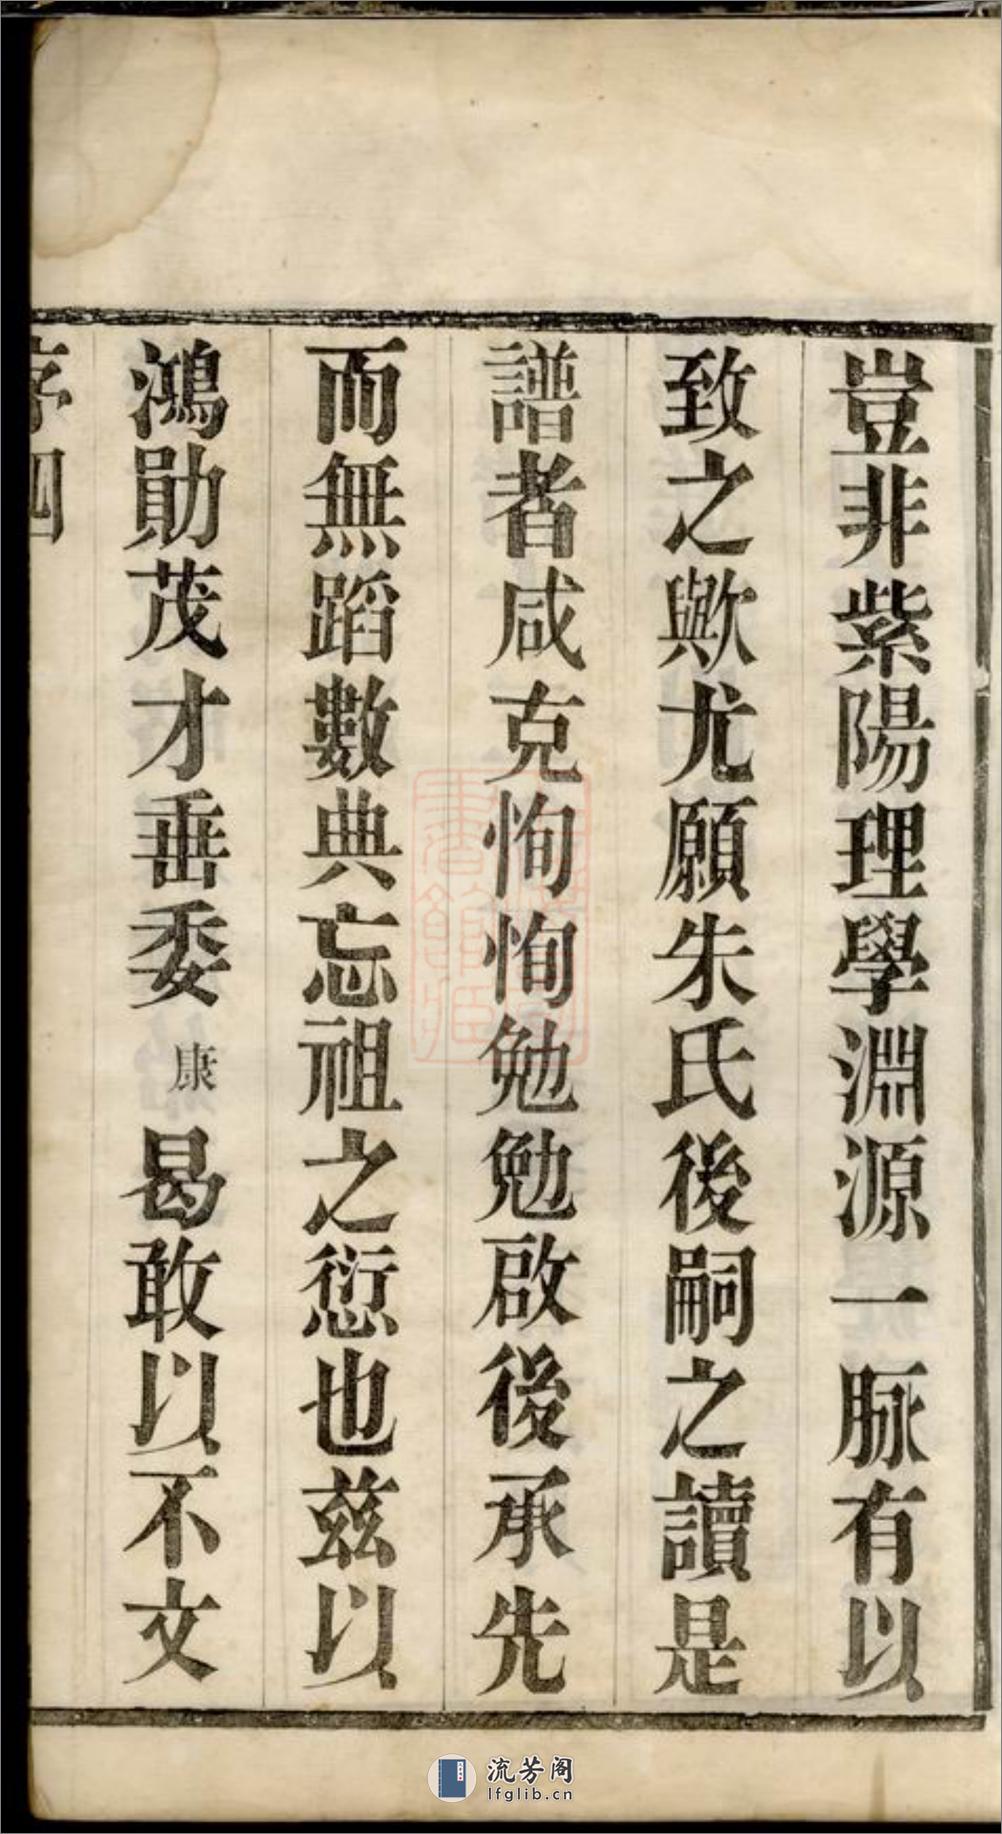 豈非紫陽理學淵源一脈有以
致之歟尤願朱氏後嗣之讀是
譜者咸克恂恂勉勉啟後承先
而無蹈數典忘祖之愆也茲以
鴻勛茂才垂委康曷敢以不文
序四
流芳阁
lfglib.cn